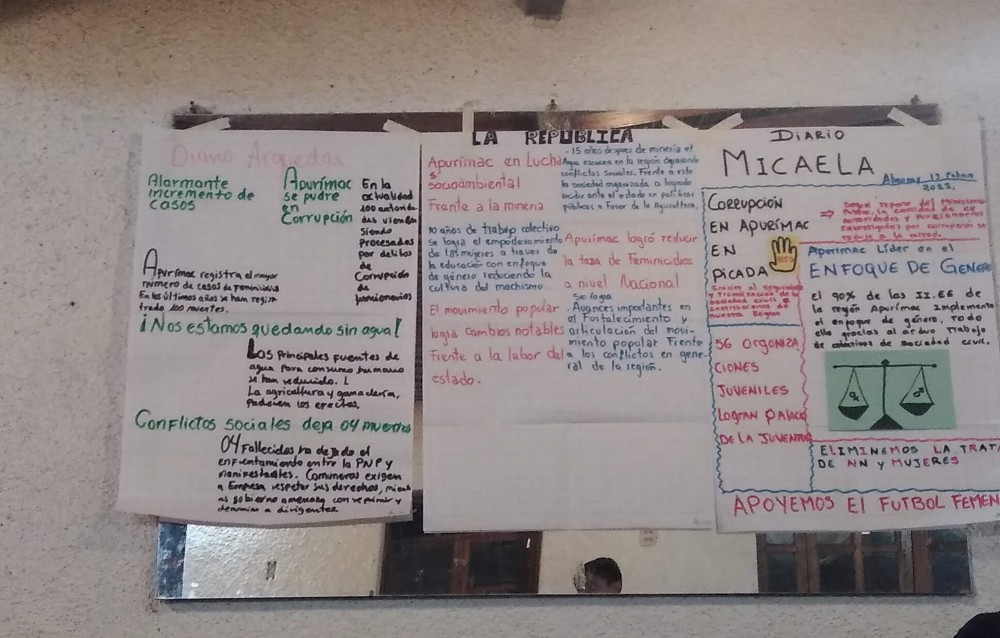 Diario Arguedas
Alarmante
incremento de
casos
Apurímac
se pudre
en
Corrupción
En la
actualidad
100 autorida
des vienen
siendo
procesados
por delitos
de
Corrupción
de
funcionarios
Apurímac registra el mayor
número de casos de feminicidios
En los últimos años se han regis
trado 100 muertes.
¡Nos estamos quedando sin agua!
Los Principales fuentes de
agua para consumo humano
se han reducido.
La agricultura y ganadería,
padecen los efectos.
Conflictos sociales deja 04 muertos
04 Fallecidos ha dejado el
enfrentamiento entre la PNP y
manifestantes. Comuneros exigen
a Empresa respetar sus derechos,
gobierno amenaza con reprimir y
denunciar a dirigentes
LA REPÚBLICA
Apurímac en Lucha
socioambiental
Frente a la mineria
10 años de trabajo colectivo
Se logra el empoderamiento
de las mujeres a traves de
la educación con enfoque
de género reduciendo la
cultura del machismo.
El movimiento popular
logra cambios notables
Frente a la labor del
estado.
- 15 años despues de mineria el
Agua escacea en la región
conflictos sociales. Frente a esto
la sociedad organizada a logrado
incidir ante el estado en políticas
públicas a Favor de la Agricultura.
Apurímac logró reducir
la tasa de Feminicidios
a nivel Nacional
Se logra
- Avances importantes en
el Fortalecimiento y
articulación del movi-
miento popular Frente
a los conflictos en gene-
ral de la región.
DIARIO
MICAELA
Abancay, 12
2022.
CORRUPCIÓN
EN APURÍMAC
EN
PICADA
Según reporte del Ministerio
Público, la cantidad de
autoridades y funcionarios
investigados por corrupción se
redujo a la mitad.
Gracias al seguimiento
y fiscalización de la
sociedad civil e
instituciones de
nuestra Región
Apurímac Líder en el
ENFOQUE DE GÉNERO
El 90% de las II.EE de
la región Apurímac Implementa
el enfoque de género, todo
ello gracias al arduo trabajo
de colectivos de sociedad civil.
56 ORGANIZA
CIONES
JUVENILES
LOGRAN PALACIO
DE LA JUVENTUD
ELIMINEMOS LA TRATA
DE NN Y MUJERES
APOYEMOS EL FUTBOL FEMEN